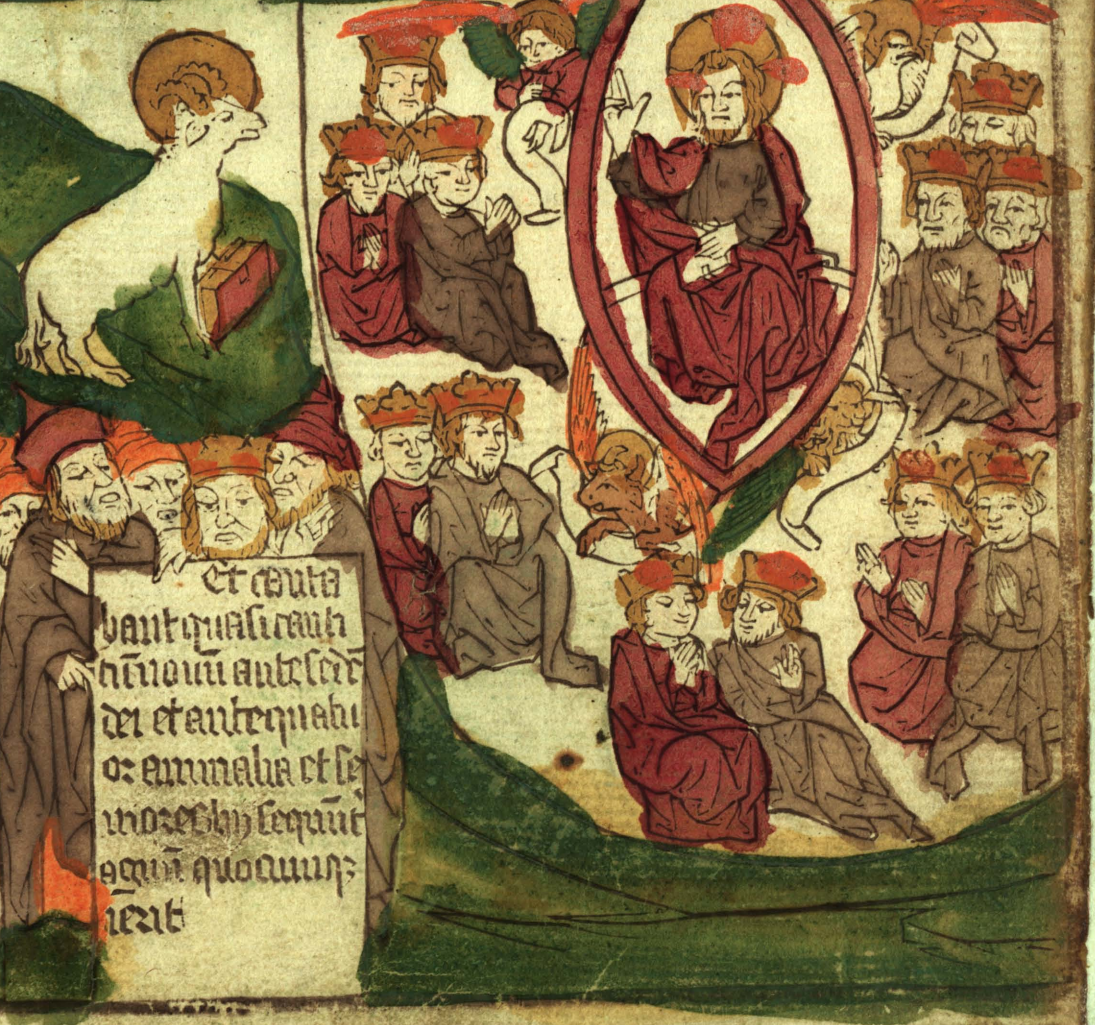 Et canta
bant quasi canti
cū nouū ante sedē
dei et ante quatu
or animalia et se
niores hij sequūt
agnū quocumqꝫ
ierit